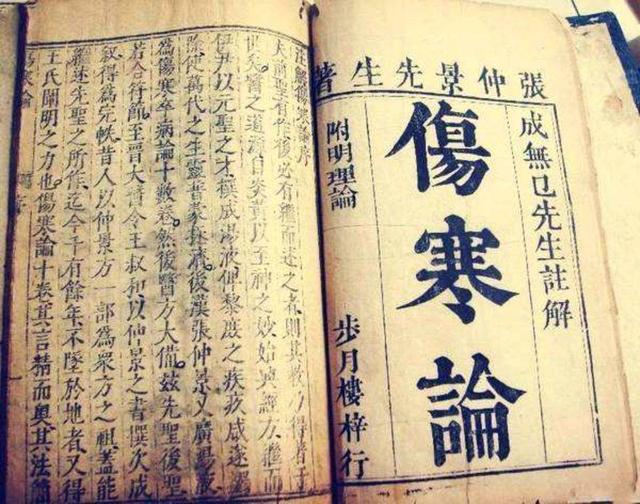 張仲景先生著
成無已先生註解
傷寒論
附明理論
步月樓梓行
注解傷寒論序
夫前聖有作後必有繼而述之者則其教乃得著于
世矣醫之道源自炎黃以至神之妙始興經方繼而
伊尹以元聖之才撰成湯液俾黎庶之疾疢咸遂蠲
除使萬代之生靈普蒙拯濟後漢張仲景又廣湯液
為傷寒卒病論十數卷然後醫方大備茲先聖後聖
若合符節至晉太醫令王叔和以仲景之書撰次成
叙得為完帙昔人以仲景方一部為眾方之祖蓋能
繼述先聖之所作迄今千有餘年不墜於地者又得
王氏闡明之力也傷寒論十卷其言精而奧其法簡
傷寒論